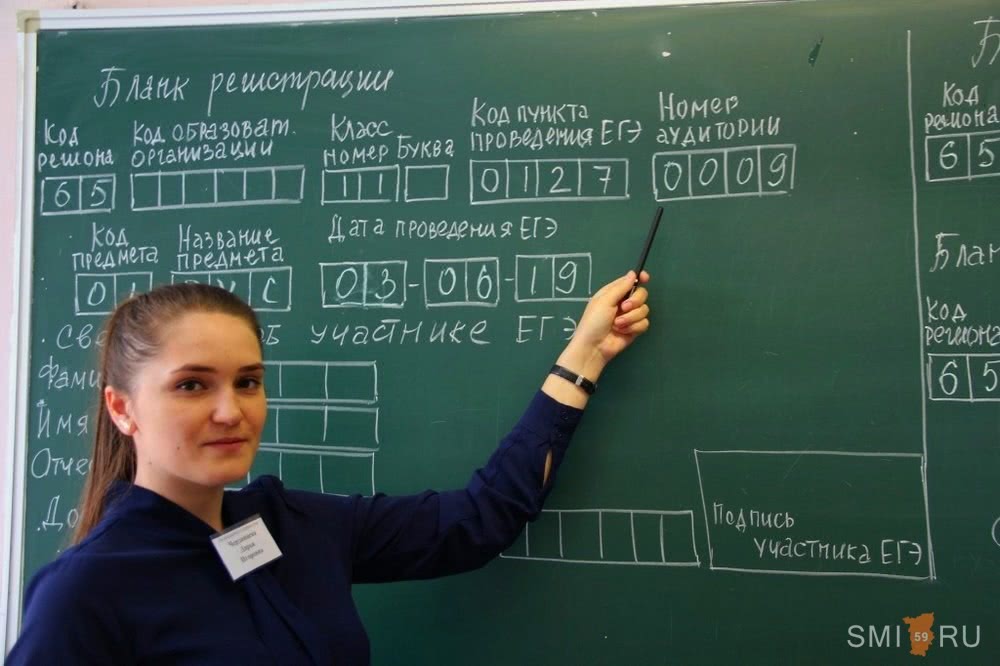 Бланк регистрации
Код региона
65
Код образоват. организации
Класс
номер Буква
11
Код пункта проведения ЕГЭ
0127
Номер аудитории
0009
Код предмета
01
Название предмета
Дата проведения ЕГЭ
03-06-19
участнике ЕГЭ
Имя
Подпись
участника ЕГЭ
Код региона
65
Код региона
65
SMI59RU